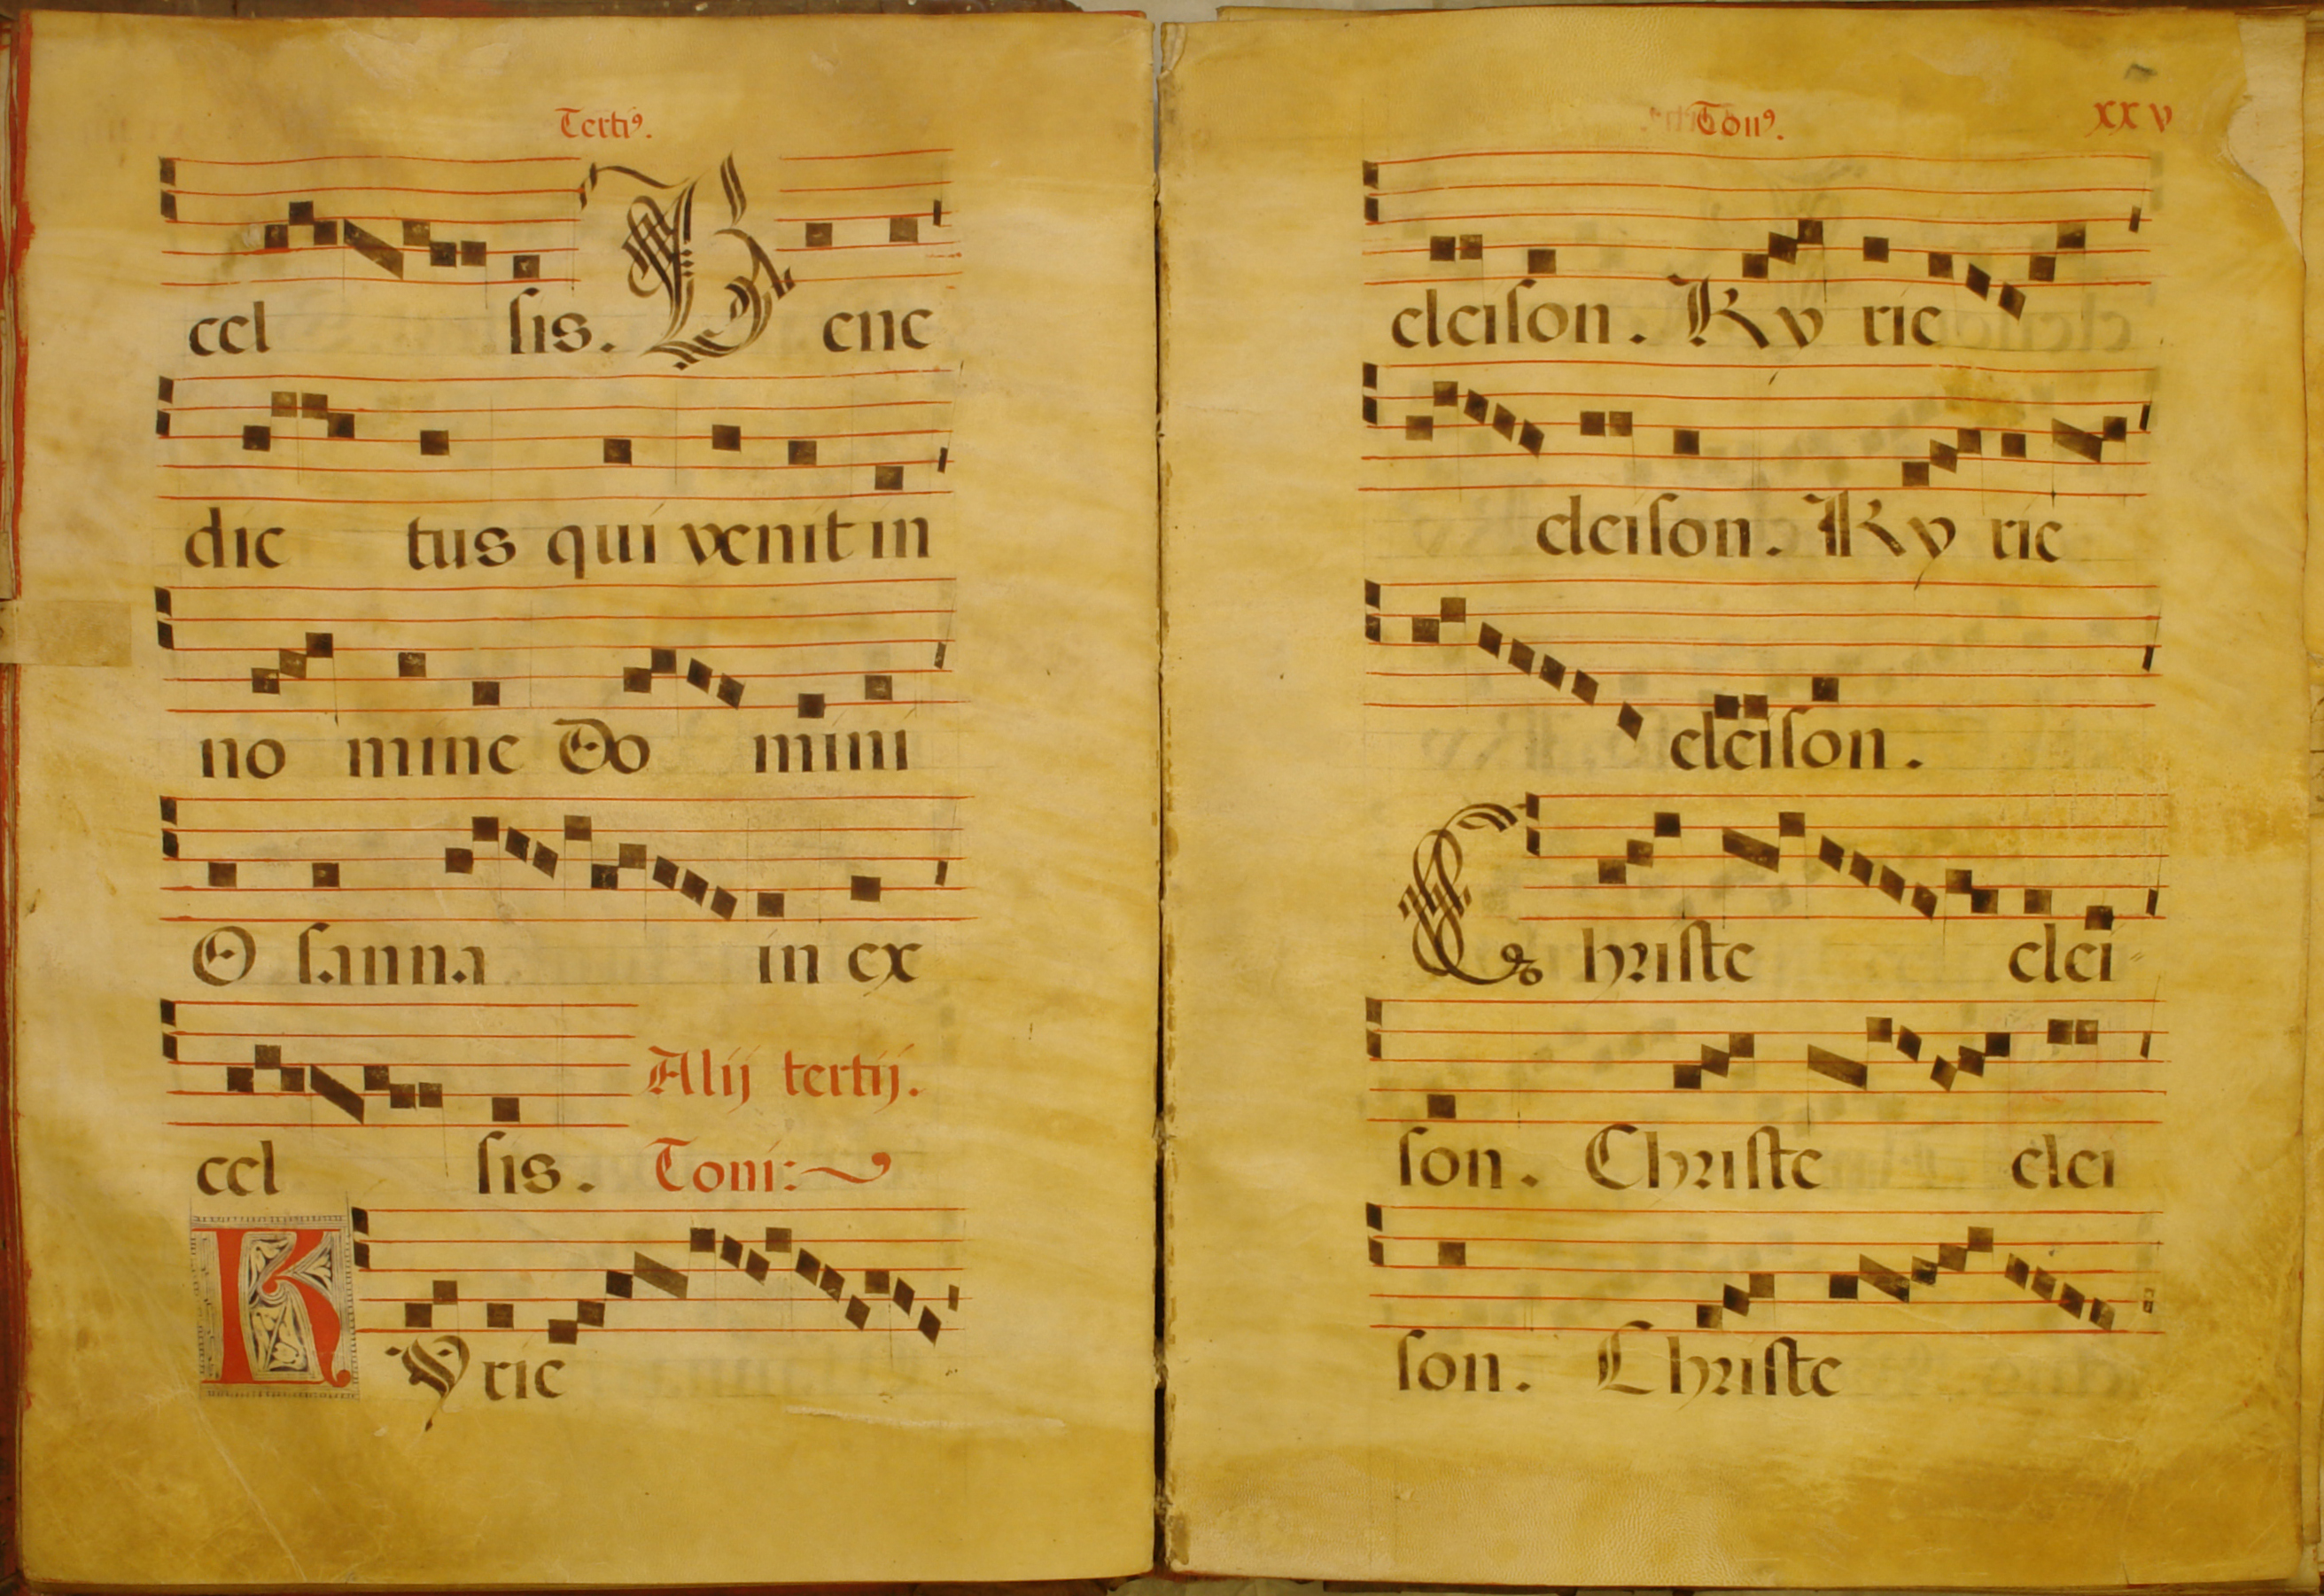 Tertiꝰ.
cel sis. Bene
dic tus qui venit in
no mine Do mini
O sanna in ex
cel sis. Alij tertij.
Toni:
K Yrie
Tonꝰ. xxv
eleison. Ky rie
eleison. Ky rie
eleison.
Christe elei
son. Christe elei
son. Christe